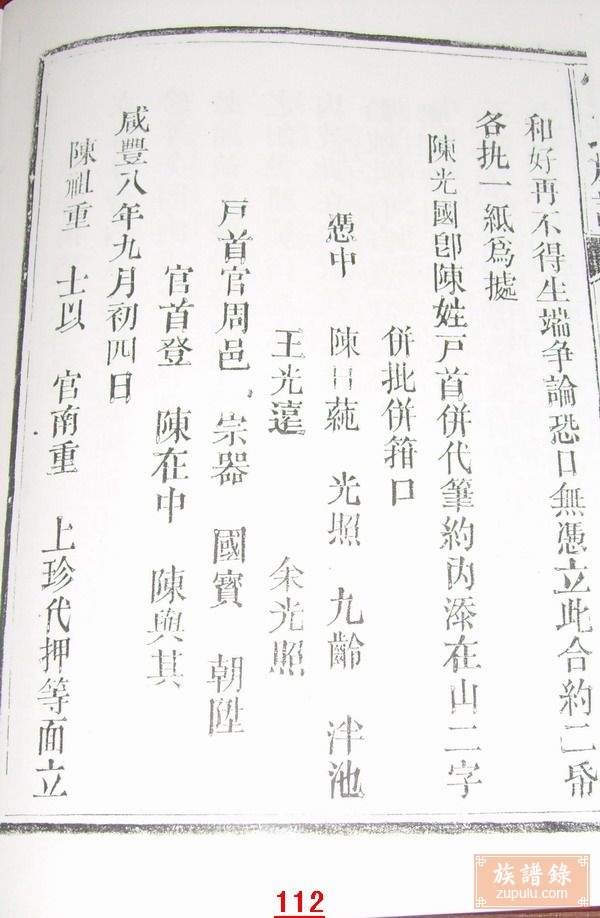 和好再不得生端争論恐口無憑立此合約二帋
各执一紙為㨿
陳光國卽陳姓戸首併代筆約內添在山二字
併批併箝口
憑中 陳日蒓 光照 九齡 泮池
王光遠 余光照
戸首官周邑 宗器 國寶 朝陞
官首登 陳在中 陳與其
咸豐八年九月初四日
陳祖重 士以 官南重 上珍代押等面立
112
族譜錄
zupulu.com